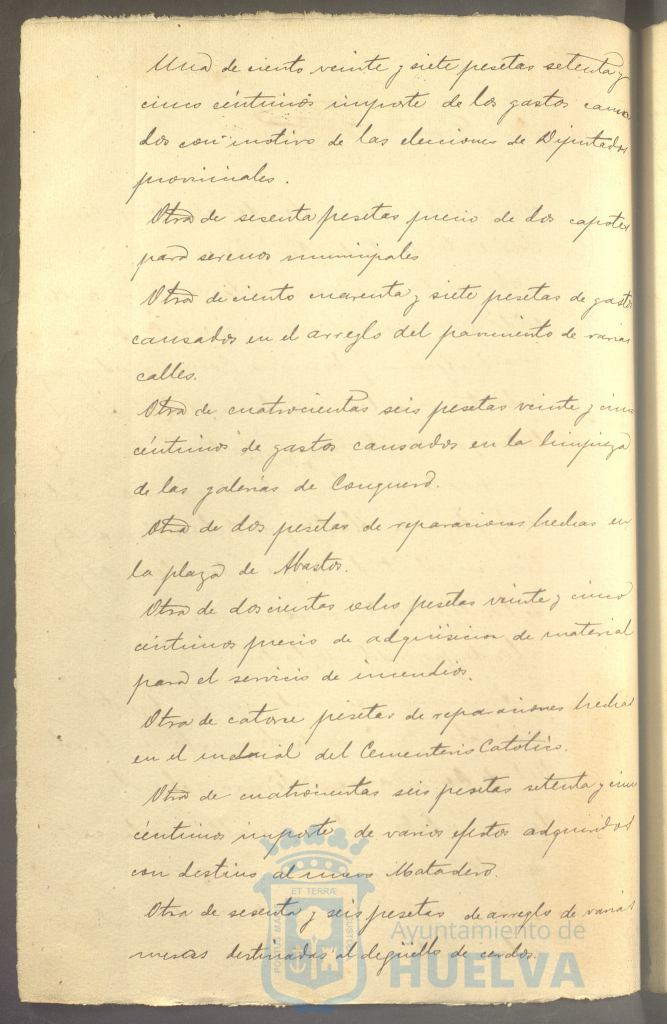 Una de ciento veinte y siete pesetas setenta y
cinco céntimos importe de los gastos causa
dos con motivo de las elecciones de Diputados
provinciales.
Otra de sesenta pesetas precio de dos capotes
para serenos municipales
Otra de ciento cuarenta y siete pesetas de gastos
causados en el arreglo del pavimento de varias
calles.
Otra de cuatrocientas seis pesetas veinte y cinco
céntimos de gastos causados en la limpieza
de las galerías de Conquero.
Otra de dos pesetas de reparaciones hechas en
la plaza de Abastos.
Otra de doscientas ocho pesetas veinte y cinco
céntimos precio de adquisicion de material
para el servicio de incendios.
Otra de catorce pesetas de reparaciones hechas
en el del Cementerio Católico.
Otra de cuatrocientas seis pesetas setenta y cinco
céntimos importe de varios efectos adquiridos
con destino al nuevo Matadero.
Otra de sesenta y seis pesetas de arreglo de varias
mesas destinadas al degüello de cerdos.
PORTUS MARIS ET TERRAE CUSTODIA
Ayuntamiento de
HUELVA